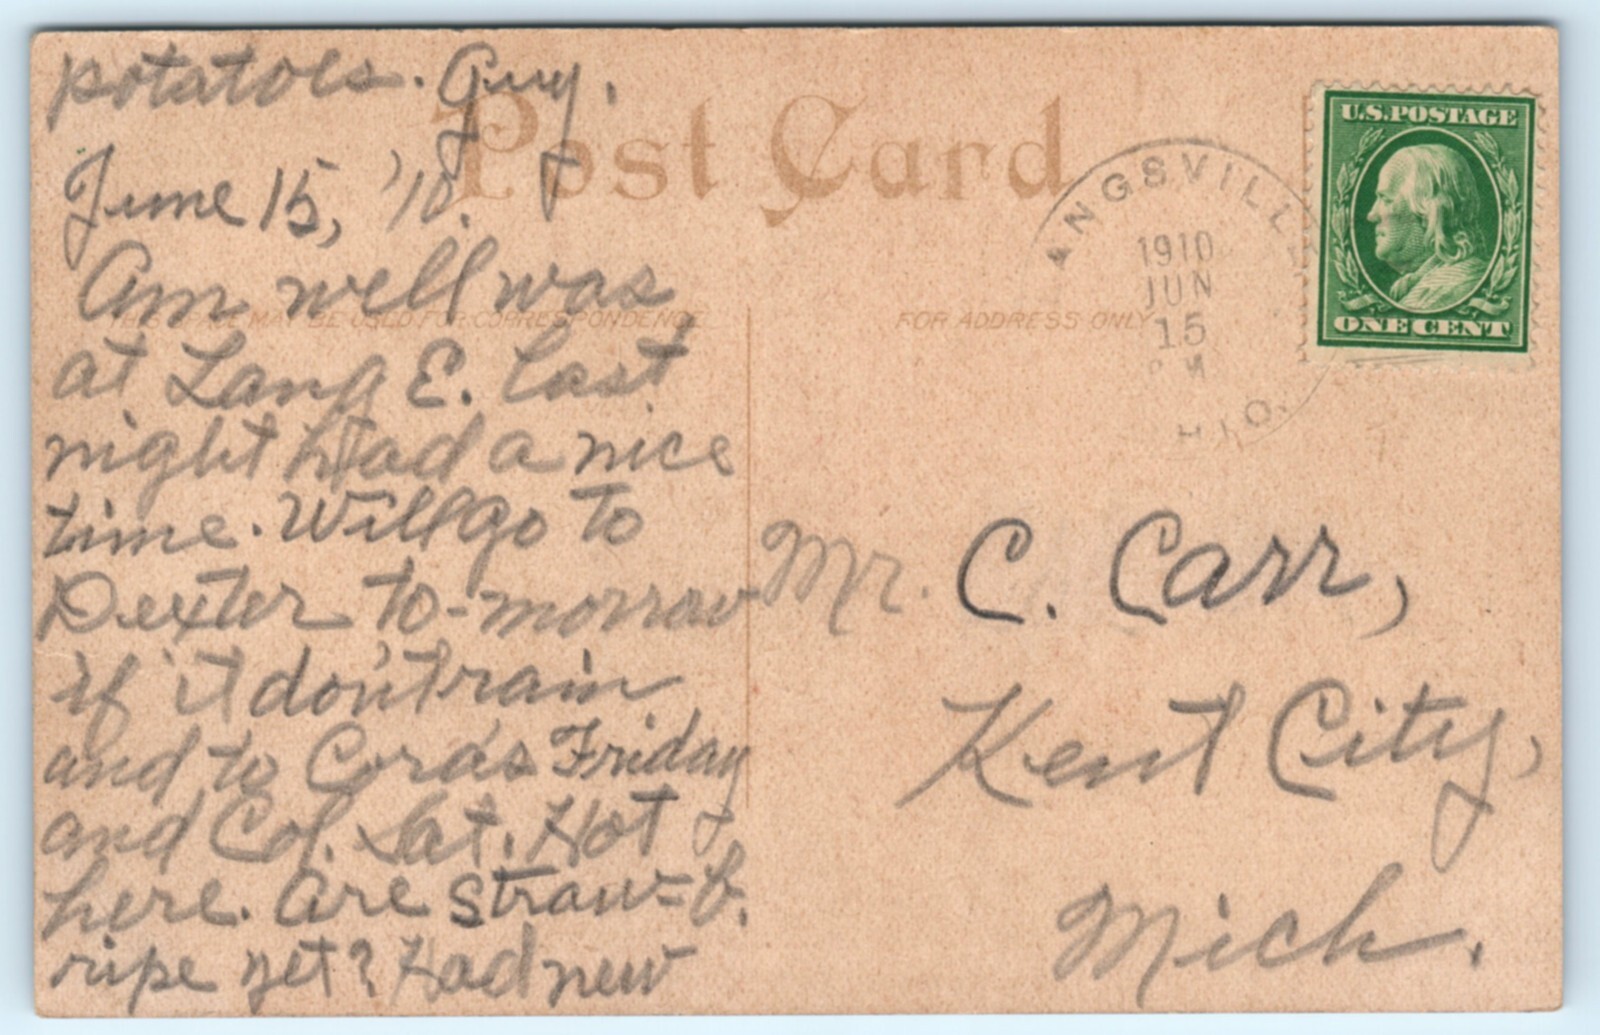 potatoes. Guy.
Post Card
June 15, '10.
Am well was
THIS SPACE MAY BE USED FOR CORRESPONDENCE
at Lang E. last
night Had a nice
time. Will go to
Dexter to-morrow
if it don't rain
and to Cora's Friday
and Col. Sat. Hot
here. Are straw=b.
ripe yet? Had new
FOR ADDRESS ONLY
ANGSVILL
1910
JUN
15
HIO.
U.S. POSTAGE
ONE CENT
Mr. C. Carr,
Kent City,
Mich.